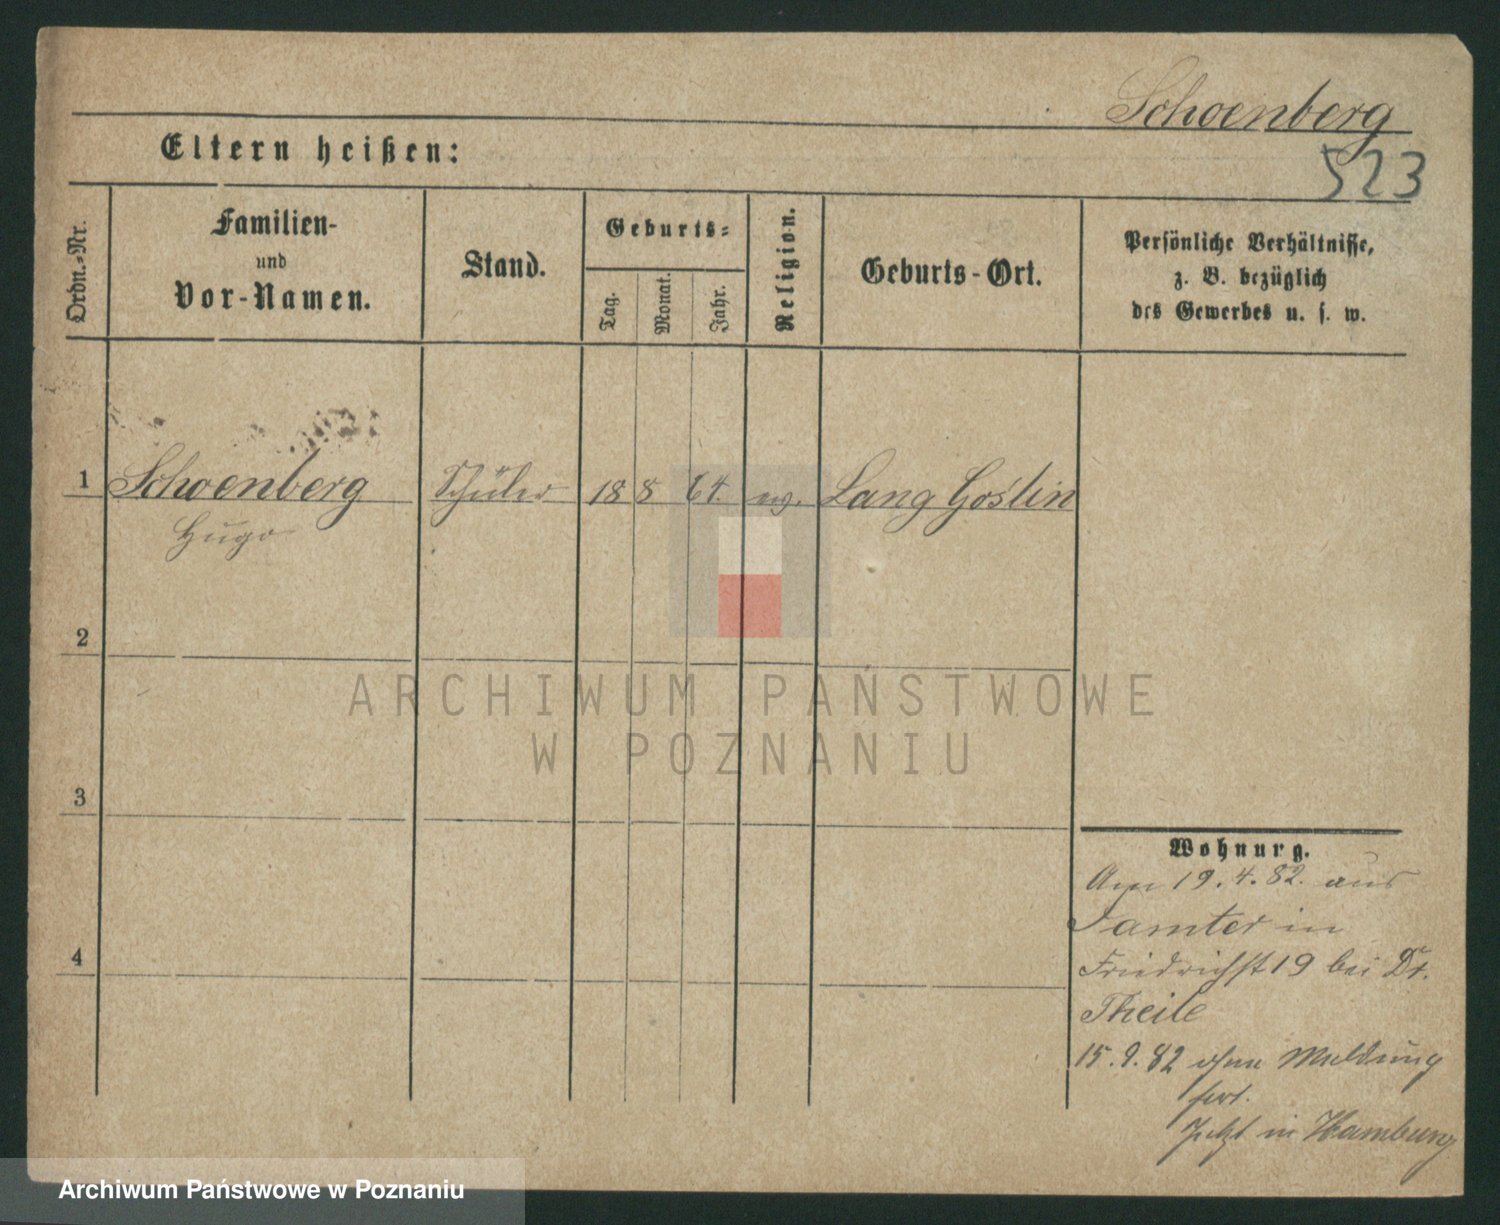 Schoenberg
523
Eltern heißen:
Ordn.-Nr.
Familien-
und
Vor-Namen.
Stand.
Geburts-
Tag.
Monat.
Jahr.
Religion.
Geburts-Ort.
Persönliche Verhältnisse,
z. B. bezüglich
des Gewerbes u. s. w.
1 Schoenberg Schüler 18 8 64. Lang Goslin
Hugo
2
ARCHIWUM PAŃSTWOWE
W POZNANIU
3
4
Wohnung.
Am 19.4.82. aus
Samter in
Friedrichst 19 bei Dr.
Theile
15.9.82 ohne Meldung
fort.
Jetzt in Hamburg
Archiwum Państwowe w Poznaniu